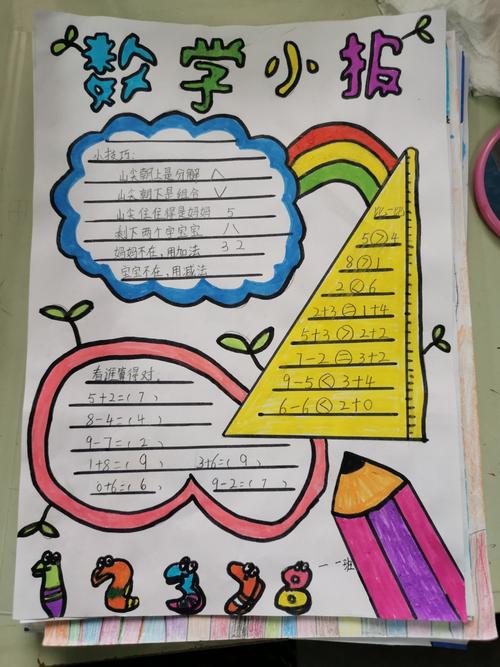 数学小报
小技巧:
山尖朝上是分解 ∧
山尖朝下是组合 ∨
山尖住住得是妈妈 5
剩下两个字宝宝 /\
妈妈不在,用加法 3 2
宝宝不在,用减法
比一比
5>4
8>1
2<6
2+3=1+4
5+3>2+2
7-2=3+2
9-5<3+4
6-6<2+0
看谁算得对.
5+2=(7)
8-4=(4)
9-7=(2)
1+8=(9) 3+6=(9)
0+6=(6) 9-2=(7)
1 2 3 7 8
一 一班